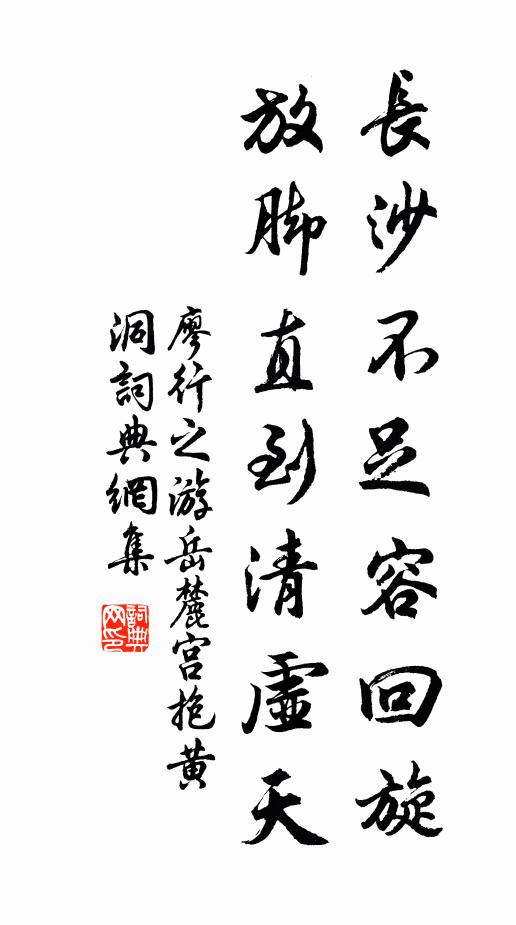 長沙不足容回旋
放脚直到清虛天
廖行之游岳麓宫抱黄
洞詞典網集
詞典
网印